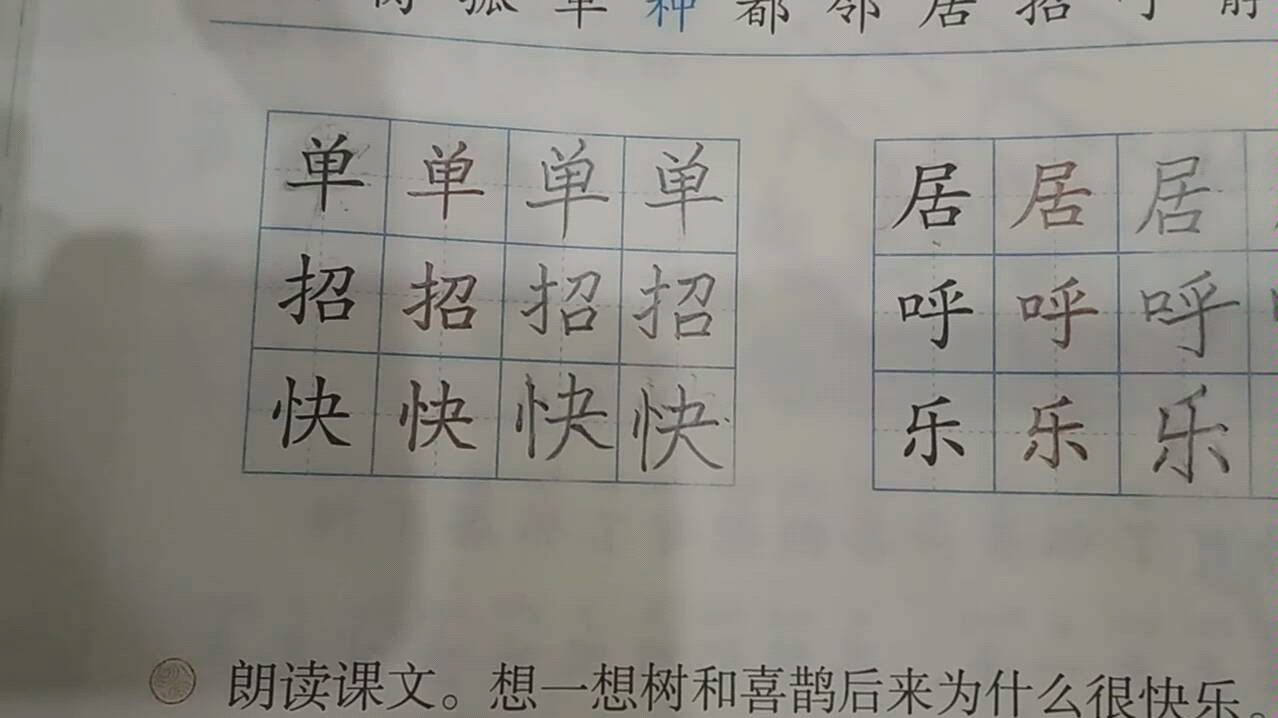 树 孤 单 种 都 邻 居 招 呼 静
单 单 单 单 居 居 居
招 招 招 招 呼 呼 呼
快 快 快 快 乐 乐 乐
朗读课文。想一想树和喜鹊后来为什么很快乐。